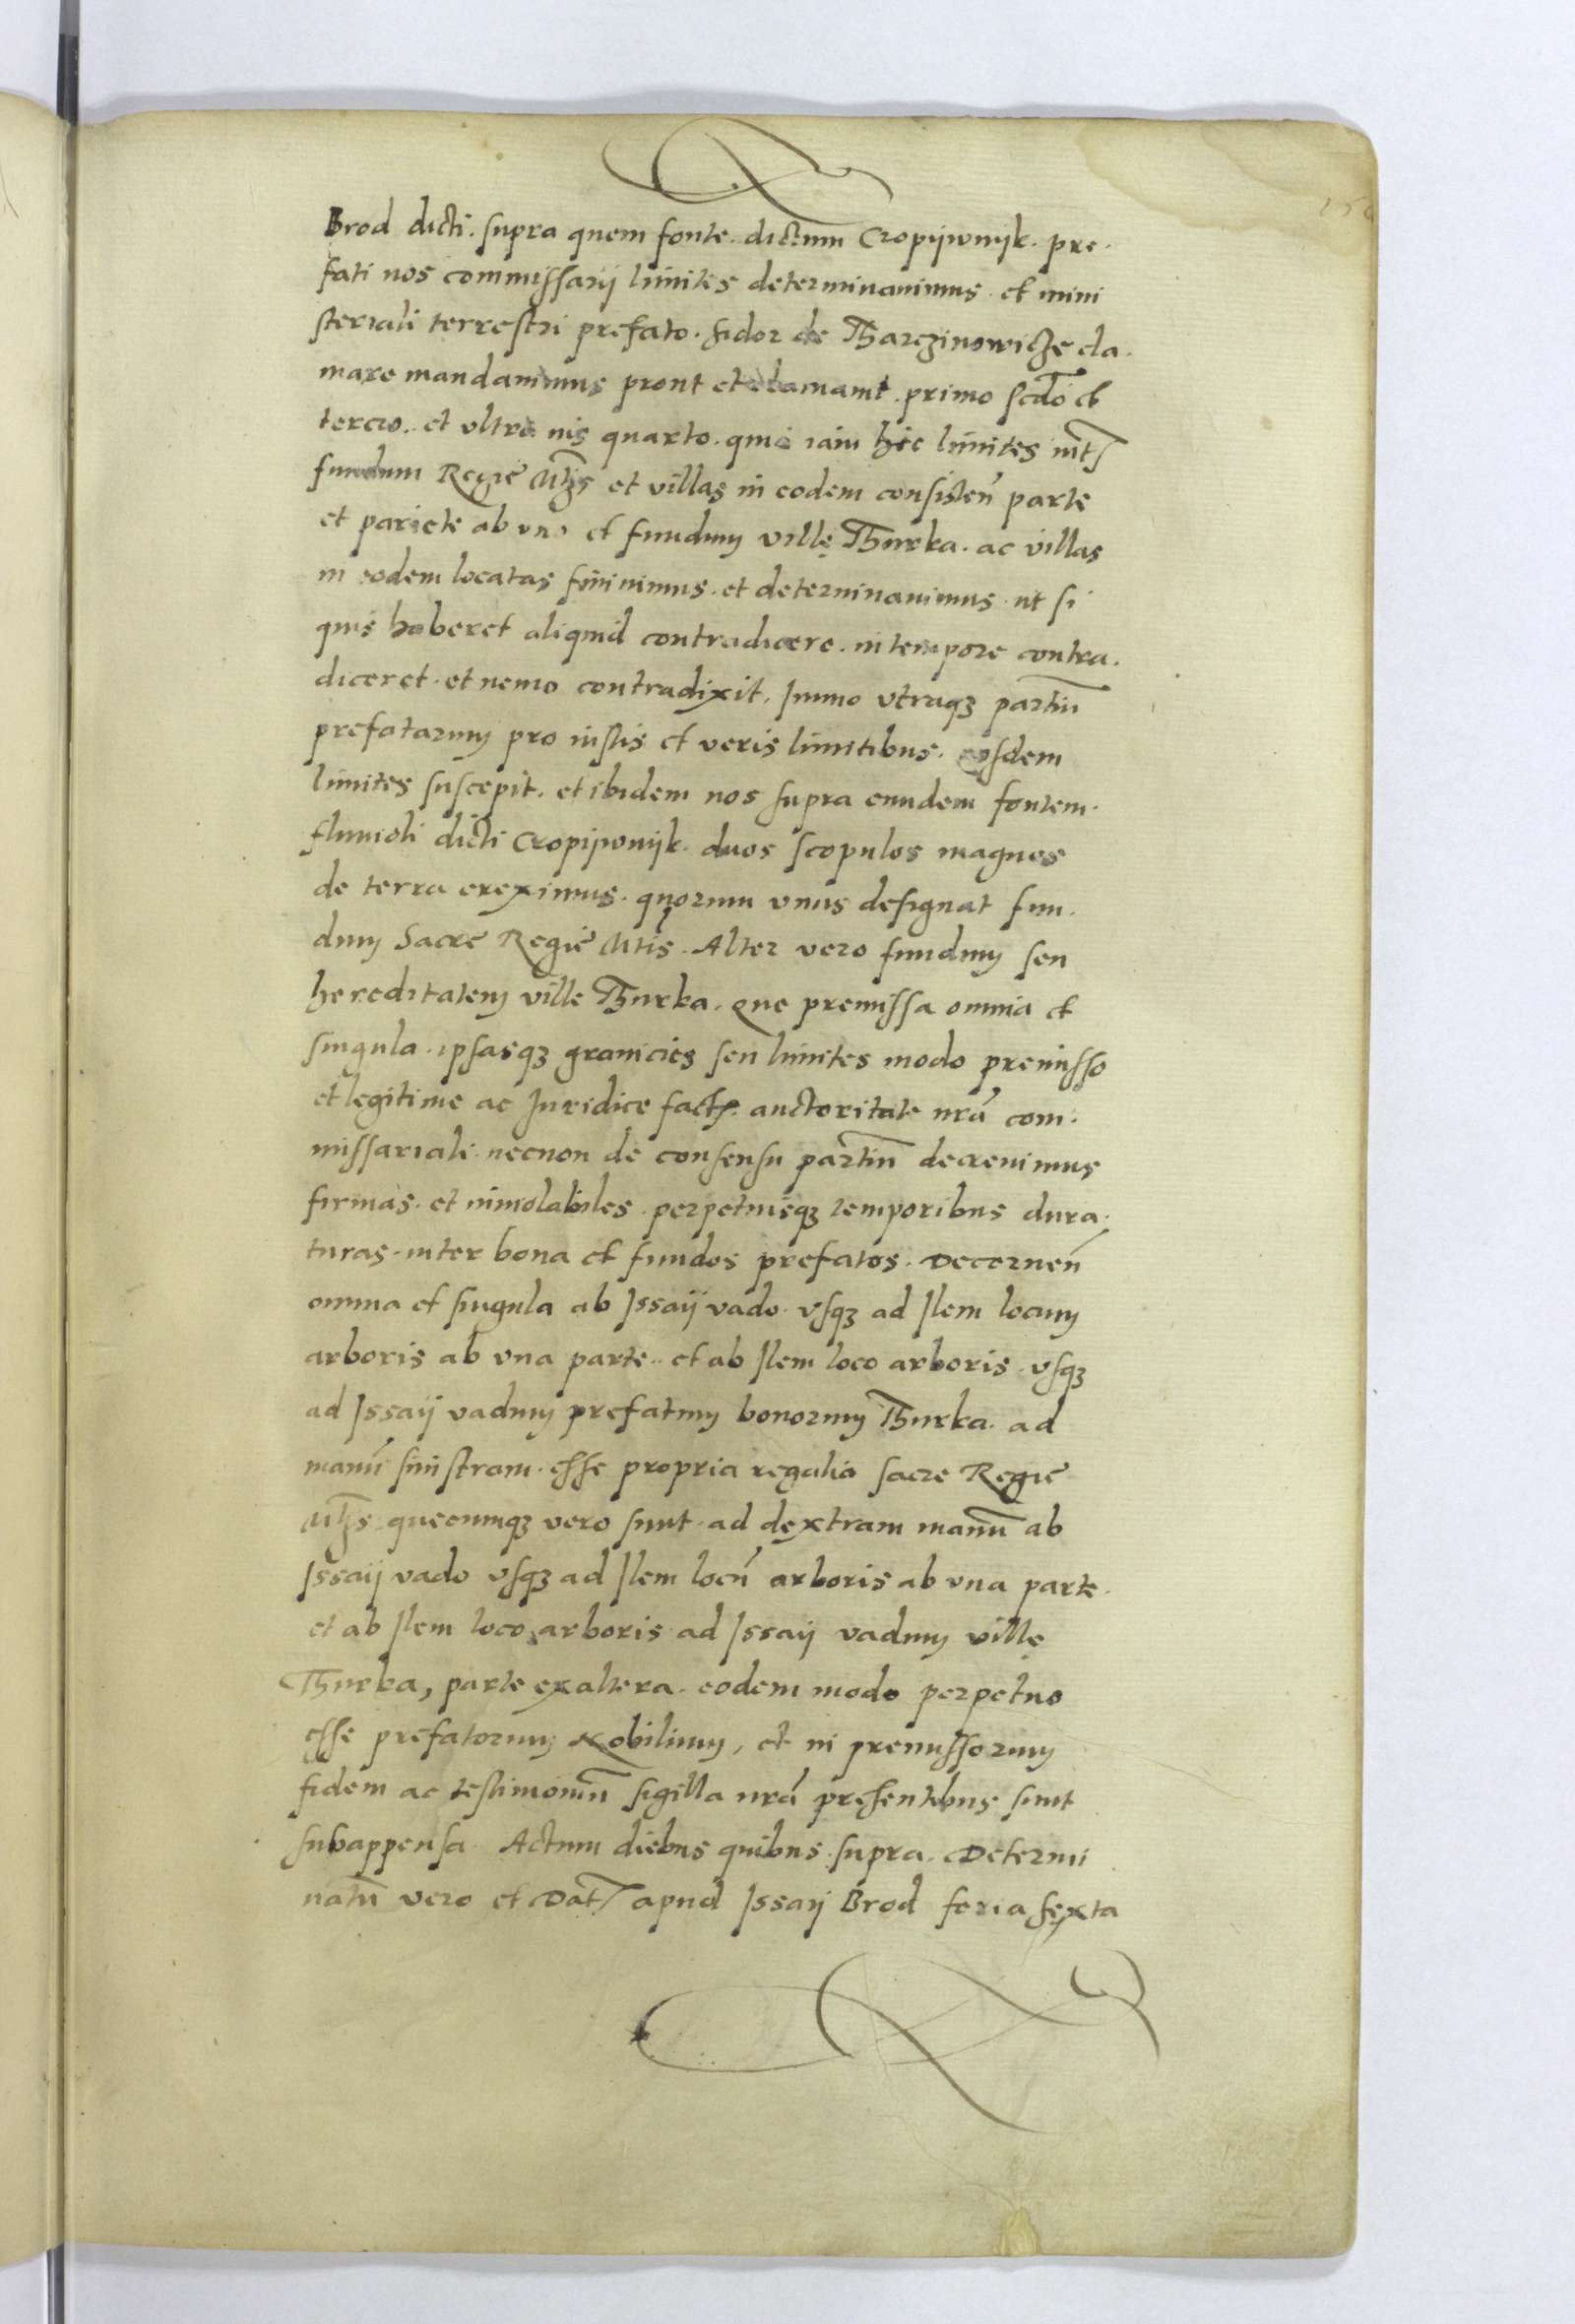 Brod dicti. supra quem fonte. dictum Cropijwnijk. pre.
fati nos commissarij limites determinauimus. et mini
steriali terrestri prefato. fidor de Tharczinowicze cla.
mare mandauimus prout et clamauit. primo scdo et
tercio. et vltra nis quarto. quia iam hic limites int
fundum Regie Mtis et villas in eodem consisten parte
et pariete ab vno et fundum ville Thurka. ac villas
in eodem locatas finiuimus. et determinauimus. ut si
quis haberet aliquid contradicere. in tempore contra.
diceret. et nemo contradixit. Immo vtraqꝫ partiu
prefatarum pro iustis et veris limitibus. eosdem
limites suscepit. et ibidem nos supra eundem fontem.
fluuioli dicti Cropijwnijk. duos scopulos magnos
de terra ereximus. quorum vnus designat fun.
dum Sacre Regie Mtis. Alter vero fundum seu
hereditatem ville Thurka. Que premissa omnia et
singula. ipsasqꝫ granicies seu limites modo premisso
et legitime ac Juridice fact. auctoritate nra com.
missariali. necnon de consensu partiu decreuimus
firmas. et inuiolabiles. perpetuisqꝫ temporibus dura.
turas. inter bona et fundos prefatos. Decernen
omnia et singula ab Issaij vado. vsqꝫ ad Ilem locum
arboris ab vna parte. et ab Ilem loco arboris. vsqꝫ
ad Issaij vadum prefatum bonorum Thurka. ad
manu sinistram. esse propria regalia sacre Regie
Mtis quecumqꝫ vero sunt. ad dextram manu ab
Issaij vado vsqꝫ ad Ilem locu arboris ab vna parte.
et ab Ilem loco arboris ad Issaij vadum ville
Thurka, parte ex altera. eodem modo perpetuo
esse prefatorum Nobilium, et in premissorum
fidem ac testimoniu sigilla nra presentibus sunt
subappensa. Actum diebus quibus supra. Determi
natu vero et Dat apud Issaij Brod feria sexta